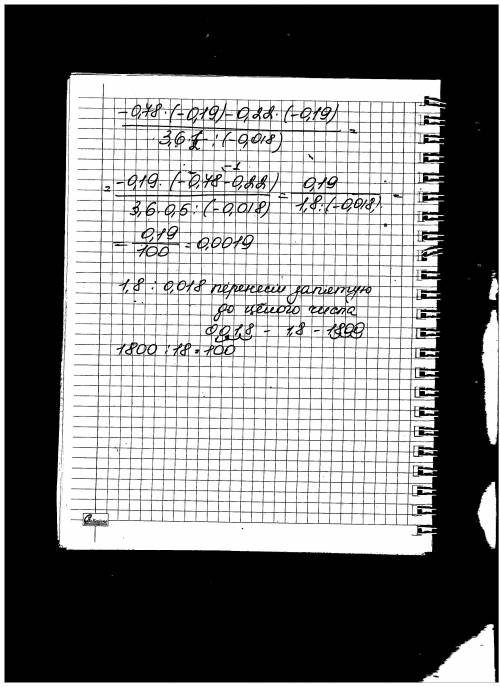 -0,78·(-0,19)-0,22·(-0,19)
3,6·1/2 : (-0,018) =
-1
= -0,19·(-0,78-0,22) = 0,19 =
3,6·0,5:(-0,018) 1,8:(-0,018)
= 0,19/100 = 0,0019
1,8 : 0,018 перенесли запятую
до целого числа
0018 - 1,8 - 1800
1800:18=100